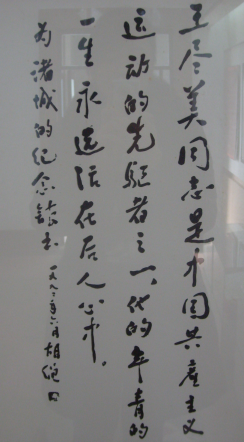 王尽美同志是中国共產主义
运动的先驱者之一，他的年青的
一生永远活在后人心中。
为诸城的纪念馆书 一九八 年六月胡绳